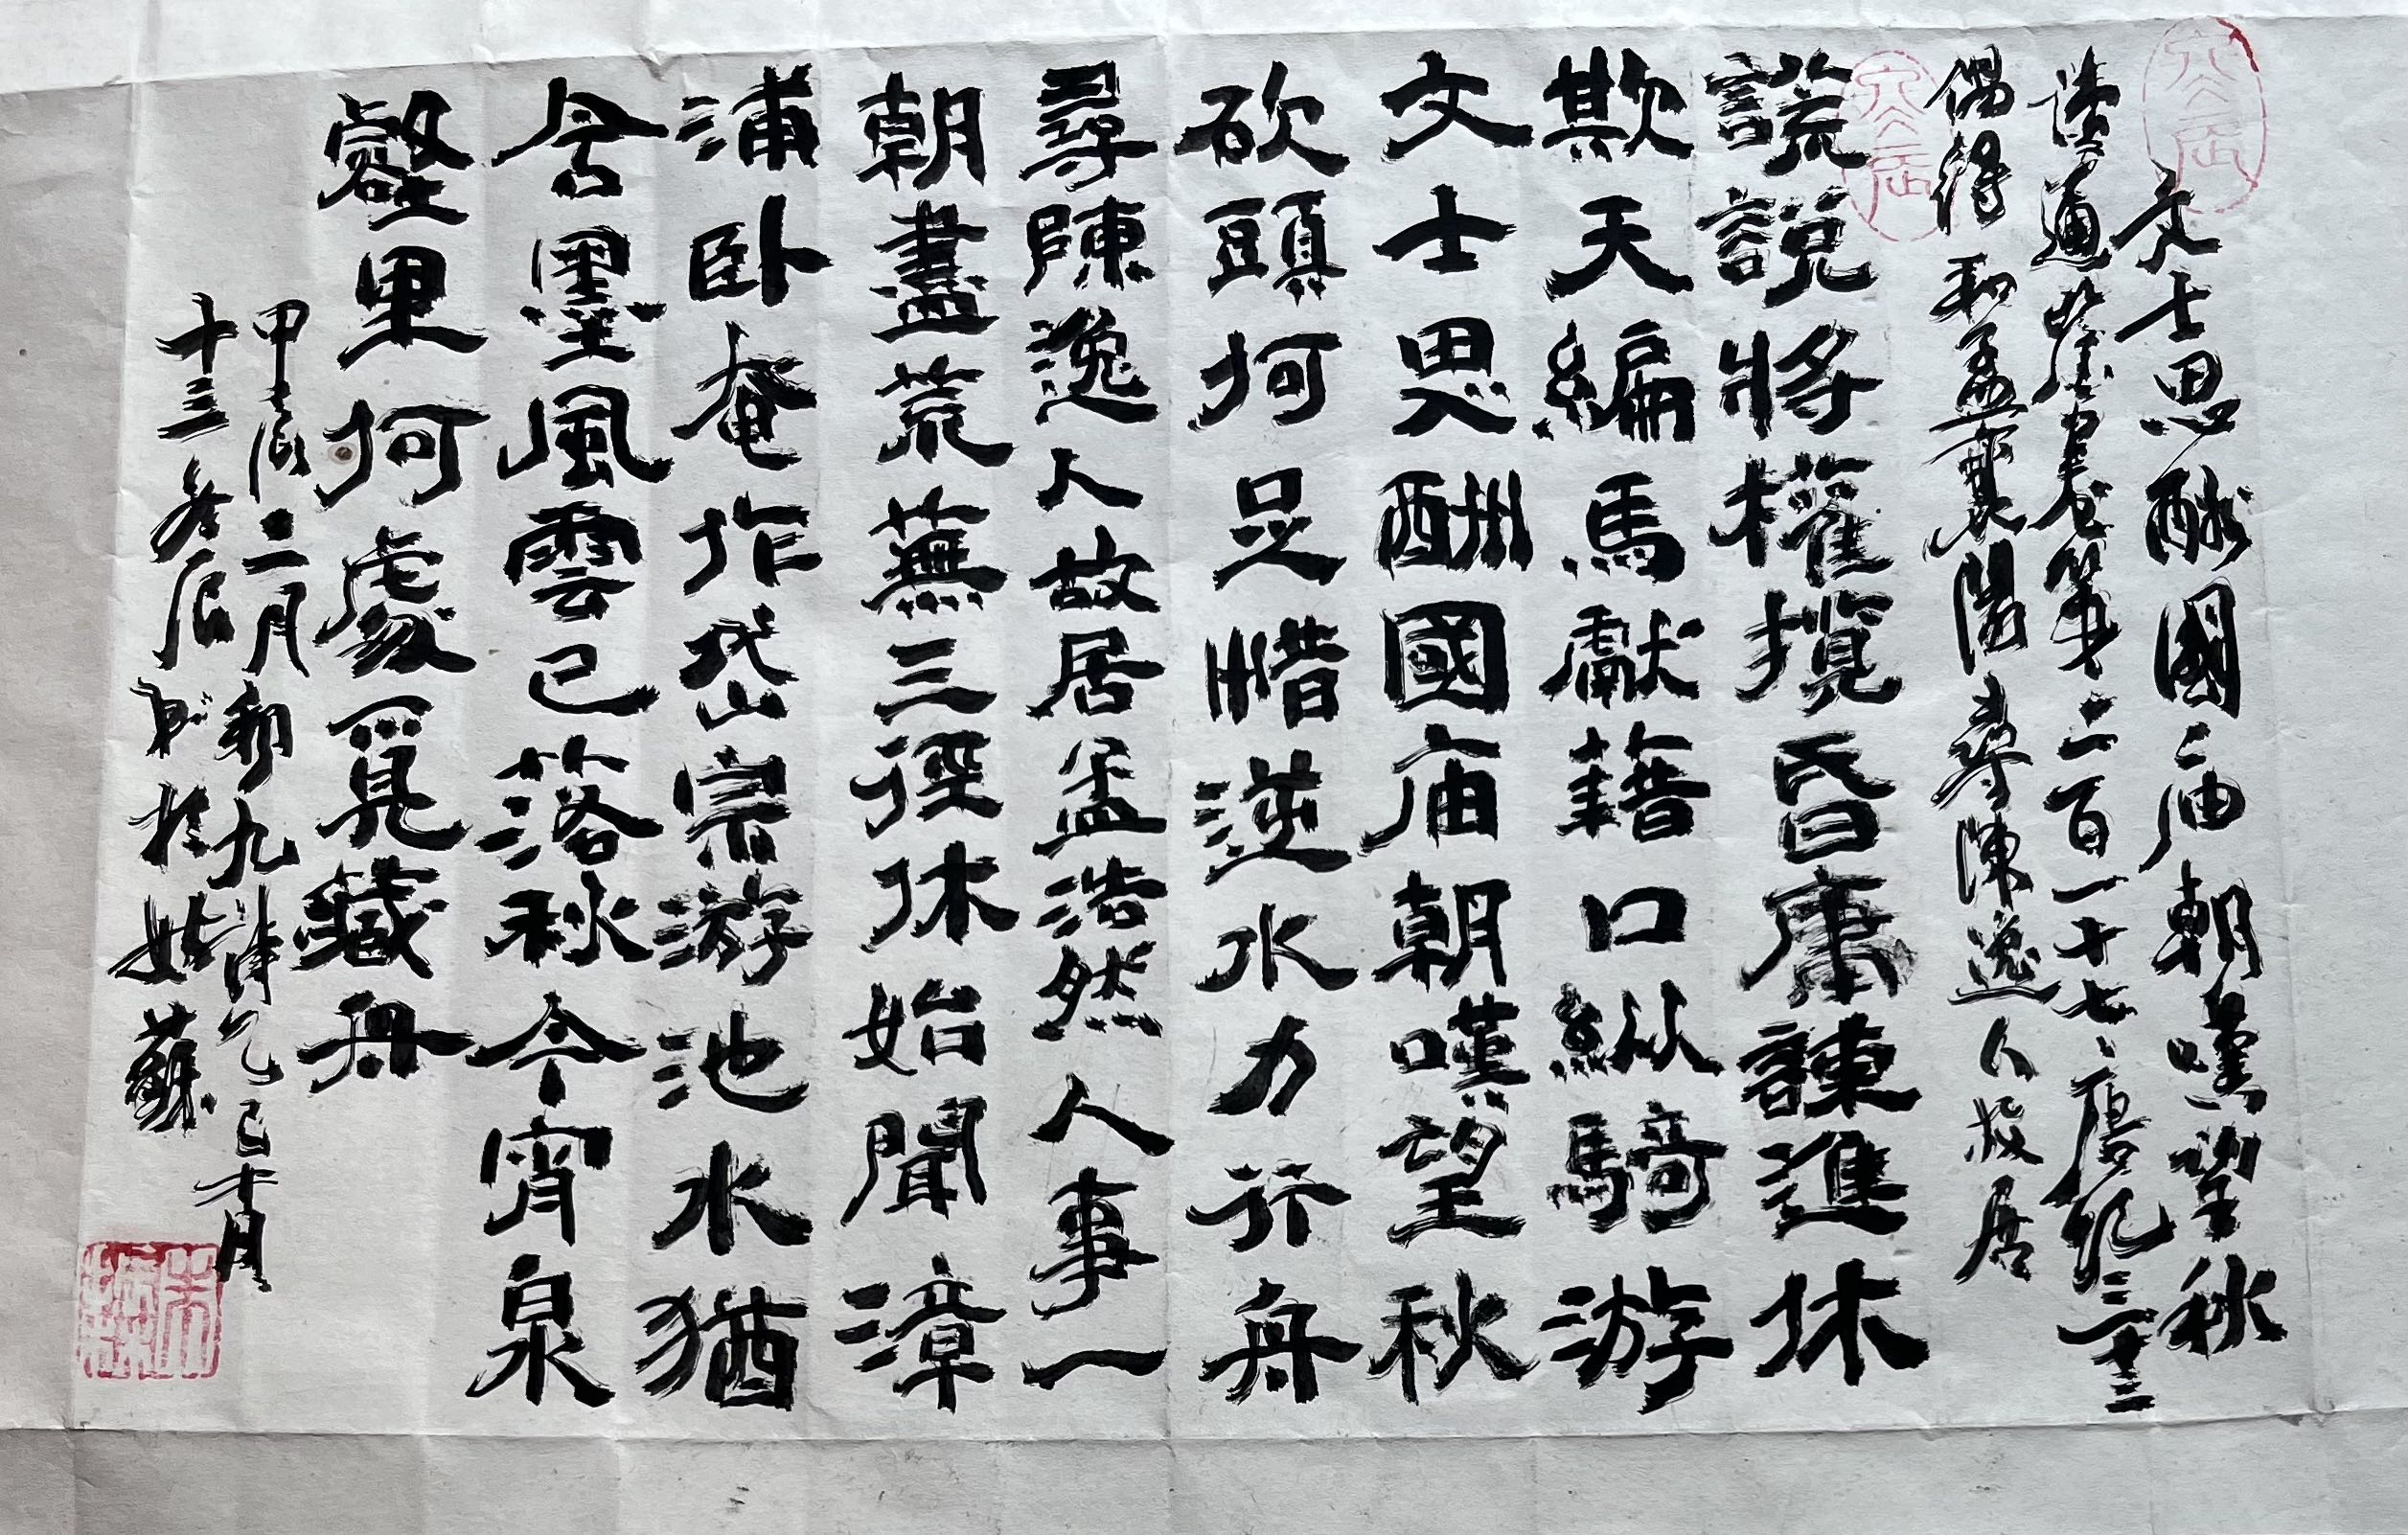 文士思酬國 庙朝嘆望秋
讀通鑒卷第二百一十七、唐紀三十三
偶得 和孟襄陽尋陳逸人故居
謊説將權攬昏庸諫進休
欺天編馬獻藉口縱騎游
文士思酬國庙朝嘆望秋
砍頭何足惜逆水力行舟
尋陳逸人故居孟浩然人事一
朝盡荒蕪三徑休始聞漳
浦卧奄作岱宗游池水猶
含墨風雲已落秋今宵泉
壑里何處覓藏舟
甲辰二月初九 乙巳十月
十三 於姑蘇